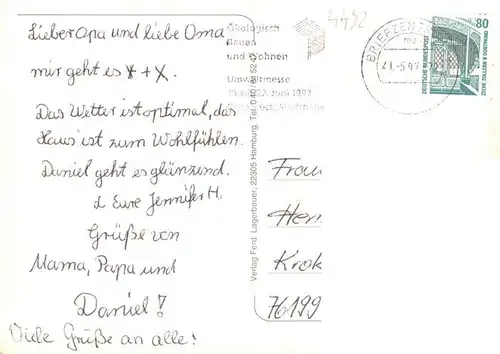 Lieber Opa und liebe Oma
mir geht es *+X.
Das Wetter ist optimal, das
Haus ist zum Wohlfühlen.
Daniel geht es glänzend.
Eure Jennifer H.
Grüße von
Mama, Papa und
Daniel!
Viele Grüße an alle!
Ökologisch
Bauen
und Wohnen
Umweltmesse
Juni 1997
4492
Verlag Ferd. Lagerbauer, 22305 Hamburg, Tel. 040
BRIEFZEN
80
DEUTSCHE BUNDESPOST
ZECHE ZOLLERN II DORTMUND
Frau
Her
Krok
76199